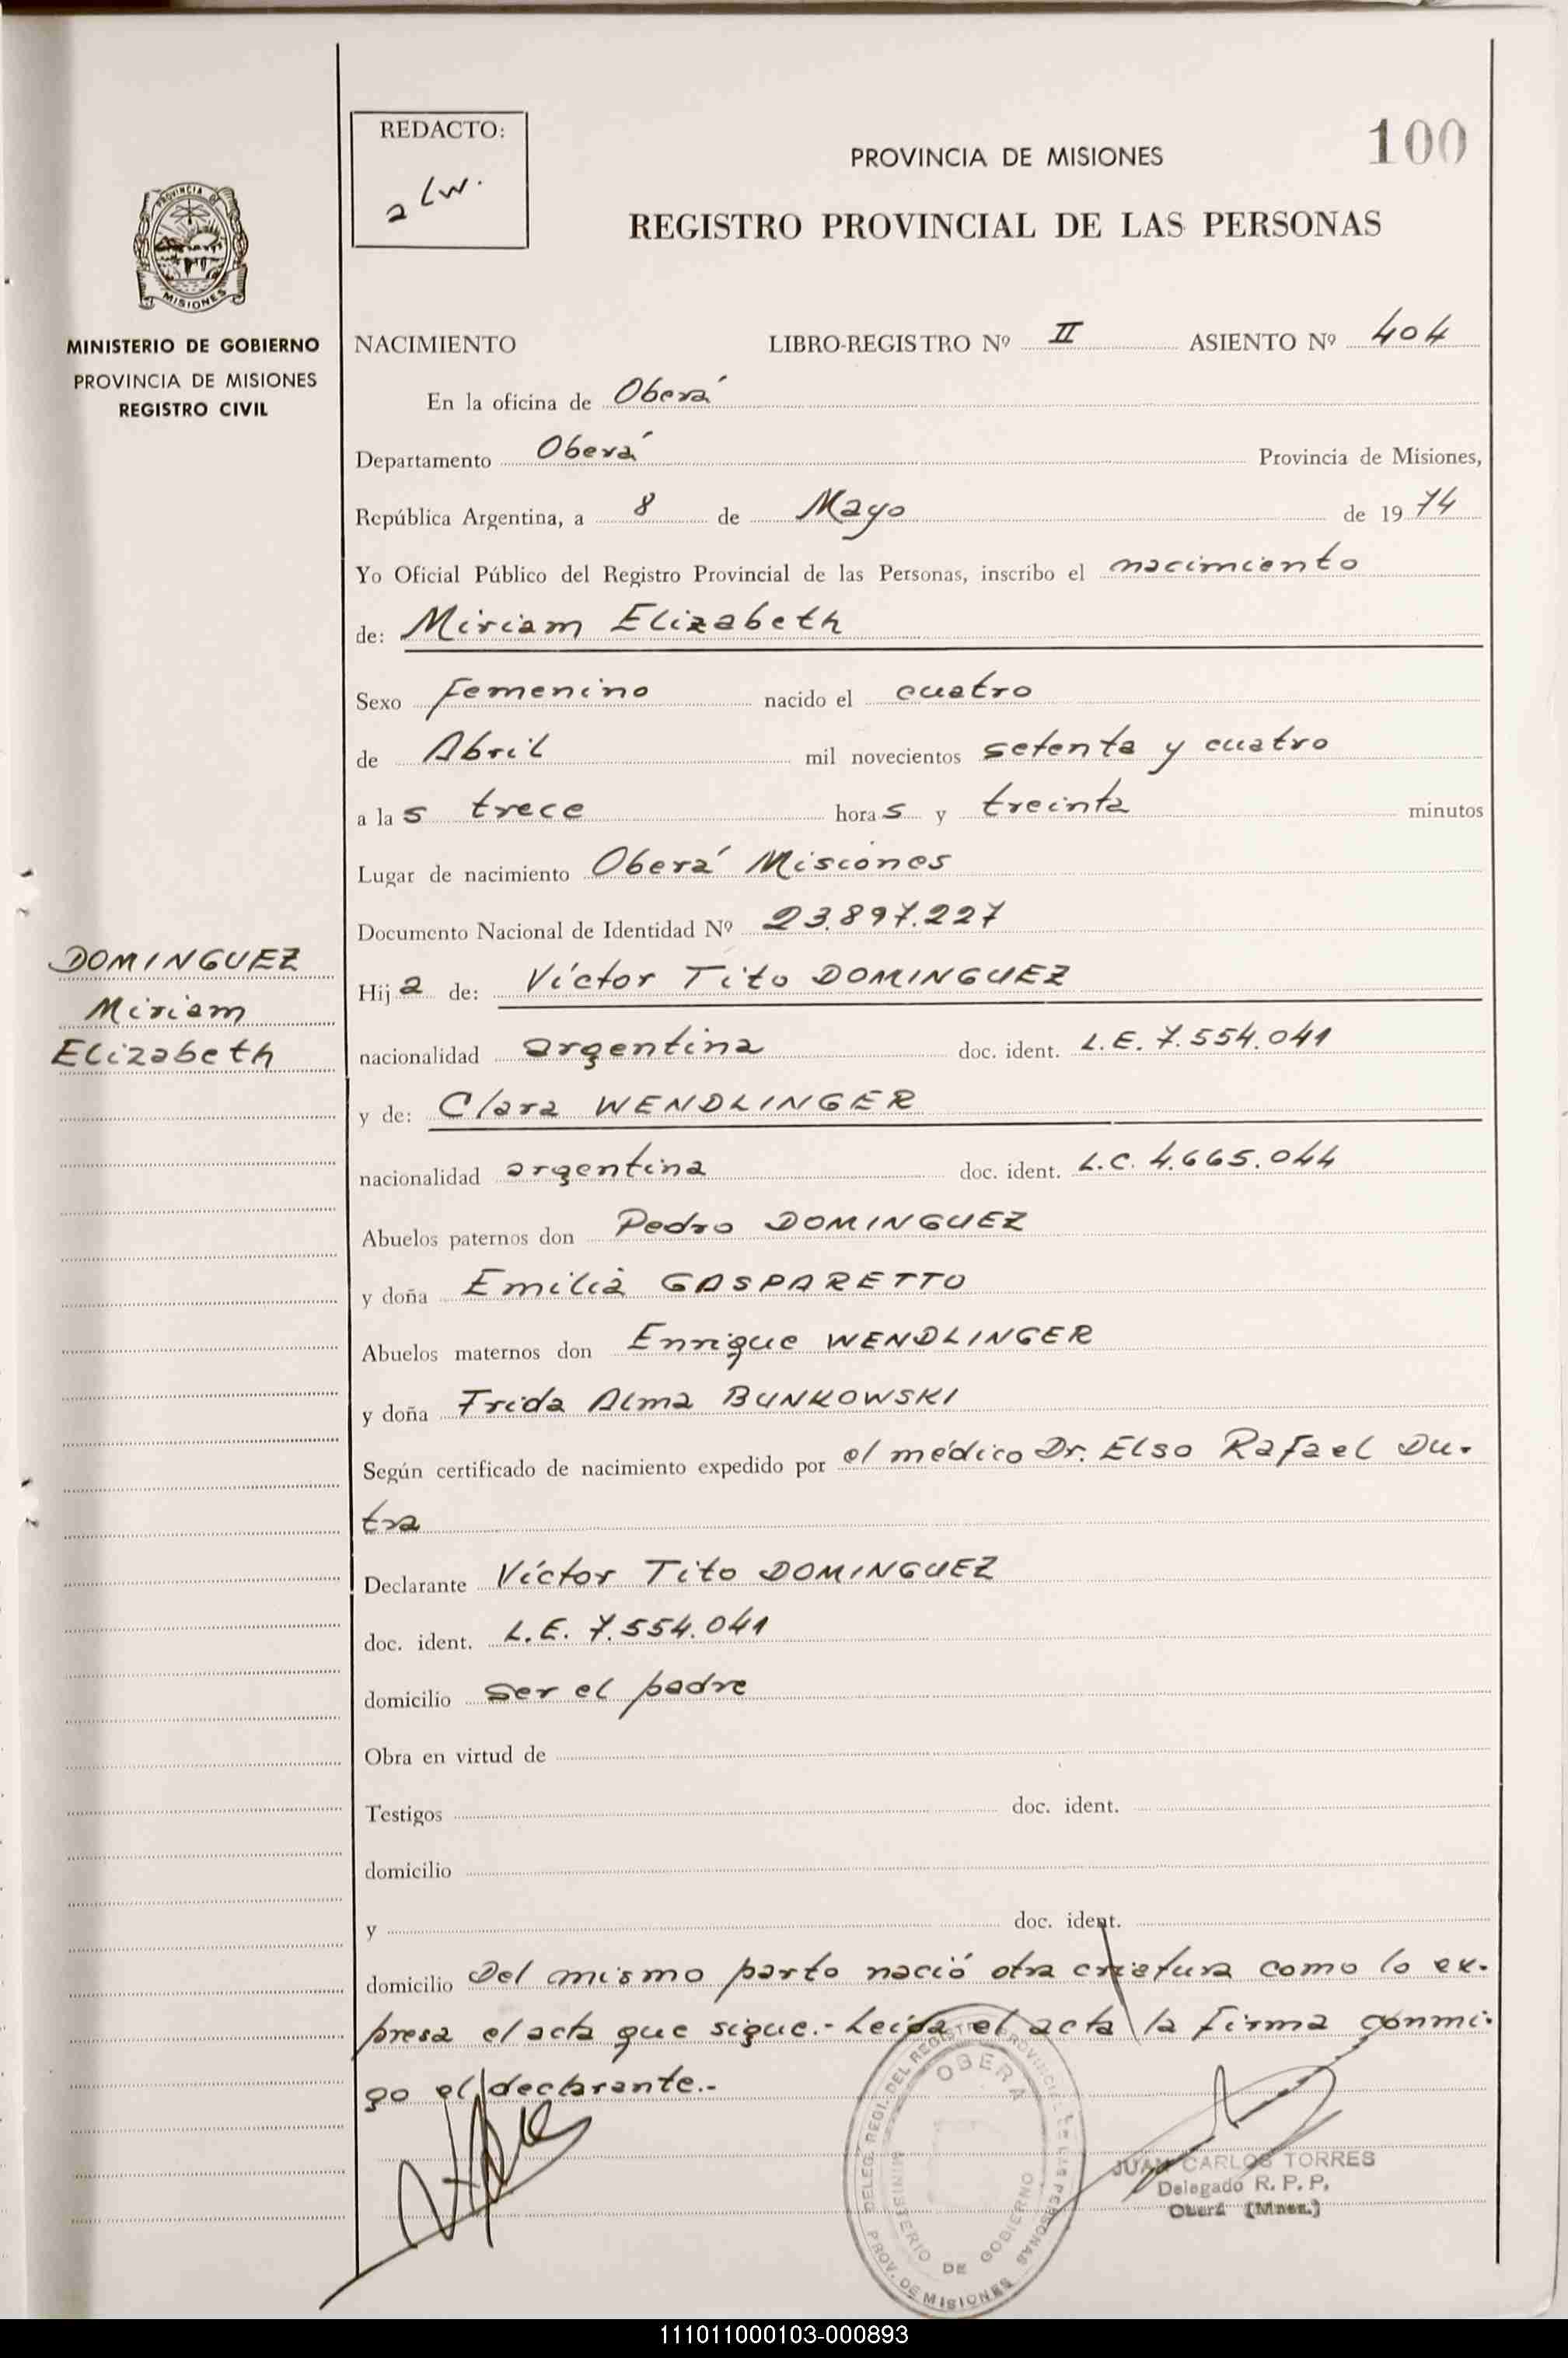 REDACTO:
a lw.
PROVINCIA DE MISIONES
100
REGISTRO PROVINCIAL DE LAS PERSONAS
PROVINCIA DE
MISIONES
MINISTERIO DE GOBIERNO
PROVINCIA DE MISIONES
REGISTRO CIVIL
NACIMIENTO LIBRO-REGISTRO Nº II ASIENTO Nº 404
En la oficina de Oberá
Departamento Oberá Provincia de Misiones,
República Argentina, a 8 de Mayo de 1974
Yo Oficial Público del Registro Provincial de las Personas, inscribo el nacimiento
de: Miriam Elizabeth
Sexo femenino nacido el cuatro
de Abril mil novecientos setenta y cuatro
a las trece horas y treinta minutos
Lugar de nacimiento Oberá Misiones
Documento Nacional de Identidad Nº 23.897.227
DOMINGUEZ
Miriam
Elizabeth
Hija de: Víctor Tito DOMINGUEZ
nacionalidad argentina doc. ident. L.E. 7.554.041
y de: Clara WENDLINGER
nacionalidad argentina doc. ident. L.C. 4.665.044
Abuelos paternos don Pedro DOMINGUEZ
y doña Emilia GASPARETTO
Abuelos maternos don Enrique WENDLINGER
y doña Frida Alma BUNKOWSKI
Según certificado de nacimiento expedido por el médico Dr. Elso Rafael Du-
tra
Declarante Víctor Tito DOMINGUEZ
doc. ident. L.E. 7.554.041
domicilio ser el padre
Obra en virtud de
Testigos doc. ident.
domicilio
y doc. ident.
domicilio Del mismo parto nació otra criatura como lo ex-
presa el acta que sigue.- Leída el acta la firma conmi-
go el declarante.-
DELEG. REGI. DEL REGISTRO PROVINCIAL DE LAS PERSONAS
OBERA
MINISTERIO DE GOBIERNO
PROV. DE MISIONES
JUAN CARLOS TORRES
Delegado R. P. P.
Oberá (Mnes.)
111011000103-000893